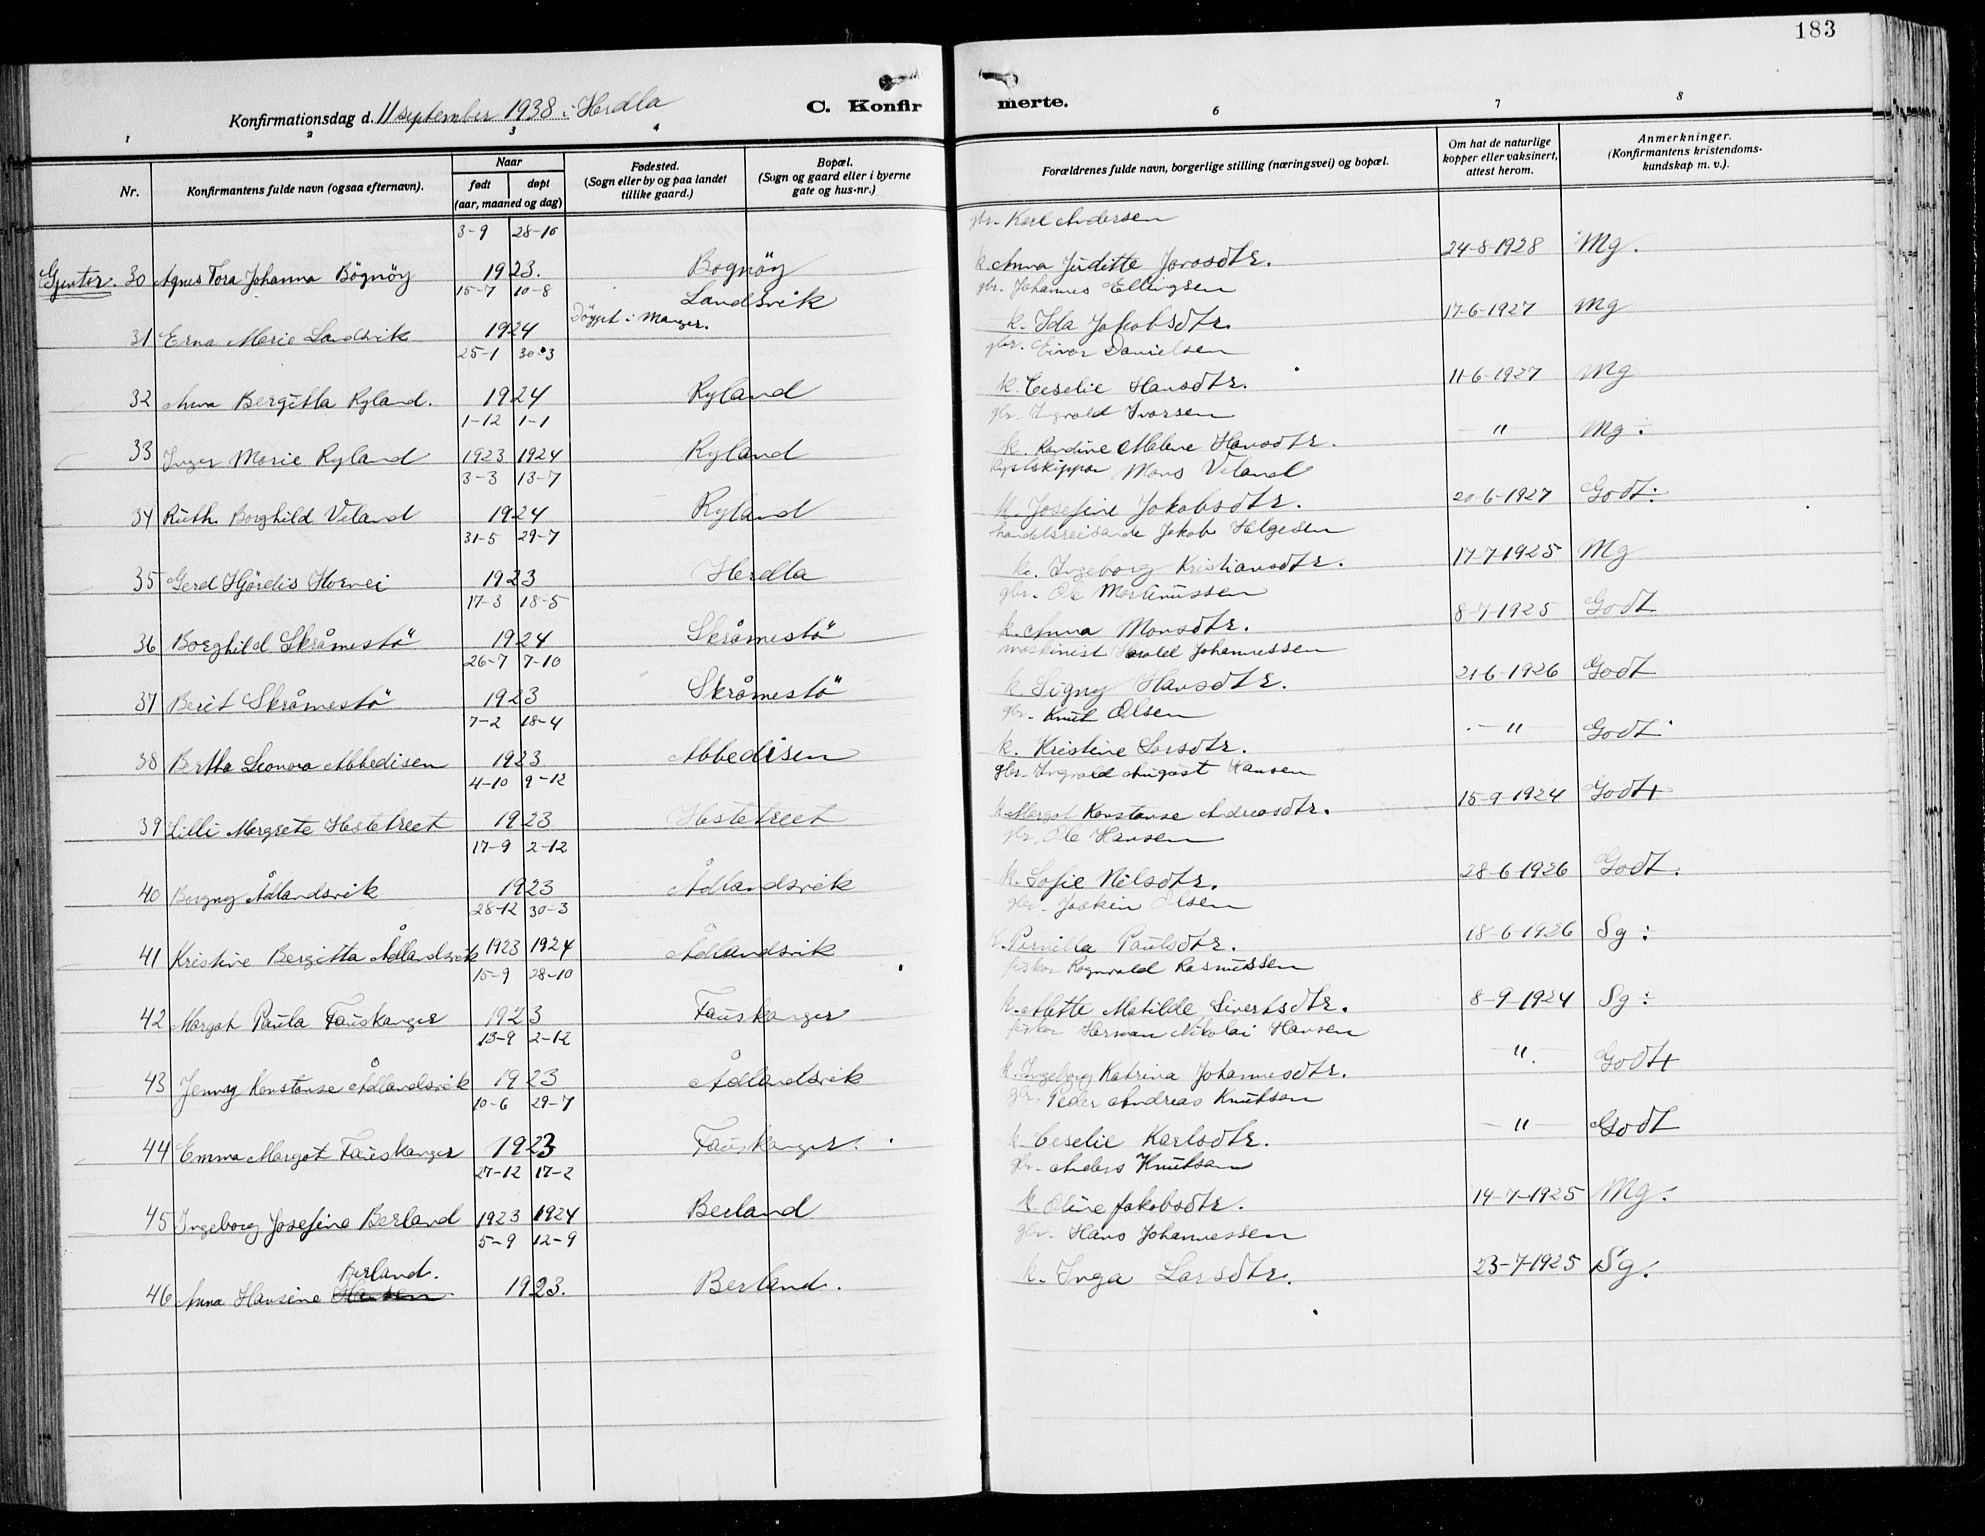 183
Konfirmationsdag d. 11 september 1938 i Herdla
C. Konfirmerte.
1 2 3 4 6 7 8
Nr.
Konfirmantens fulde navn (ogsaa efternavn).
Naar
født
døpt
(aar, maaned og dag)
Fødested.
(Sogn eller by og paa landet
tillike gaard.)
Bopæl.
(Sogn og gaard eller i byerne
gate og hus-nr.)
Forældrenes fulde navn, borgerlige stilling (næringsvei) og bopæl.
Om hat de naturlige
kopper eller vaksinert,
attest herom.
Anmerkninger.
(Konfirmantens kristendoms-
kundskap m. v.).
3-9 28-10 gbr. Karl Andersen
Gjenter. 30 Agnes Tora Johanna Bögnöy 1923. Bognöy k. Anna Juditte Jonasdtr. 24-8-1928 Mg.
15-7 10-8 gbr. Johannes Ellingsen
31 Erna Marie Landsvik 1924 Döypt i Manger. Landsvik k. Ida Jakobsdtr. 17-6-1927 Mg
25-1 30-3 gbr. Eivor Danielsen
32 Anna Bergitta Ryland. 1924 Ryland k. Ceselie Hansdtr. 11-6-1927 Mg
1-12 1-1 gbr. Ingvald Ivarsen
33 Inger Marie Ryland 1923 1924 Ryland k. Randine Malene Hansdtr. — " — Mg ÷
3-3 13-7 Kystskippar Mons Veland
34 Ruth Borghild Veland 1924 Ryland k. Josefine Jakobsdtr. 20-6-1927 Godt ÷
31-5 29-7 handelsreisande Jakob Helgesen
35 Gerd Hjördis Hornei 1923 Herdla k. Ingeborg Kristiansdtr. 17-7-1925 Mg
17-3 18-5 gbr. Ole Martinussen
36 Borghild Skråmestö 1924 Skråmestö k. Anna Monsdtr. 8-7-1925 Godt
26-7 7-10 maskinist Harald Johannessen
37 Berit Skråmestö 1923 Skråmestö k. Signy Hansdtr. 21-6-1926 Godt
7-2 18-4 gbr. Knut Olsen
38 Bertha Leonora Abbedisen 1923 Abbedisen k. Kristine Larsdtr. — " Godt
4-10 9-12 gbr. Ingvald August Hansen
39 Lilli Margrete Hestetreet 1923 Hestetreet k. Margot Konstanse Andreasdtr. 15-9-1924 Godt+
17-9 2-12 gbr. Ole Hansen
40 Borgny Ådlandsvik 1923 Ådlandsvik k. Sofie Nilsdtr. 28-6-1926 Godt.
28-12 30-3 gbr. Joakim Olsen
41 Kristine Bergitta Ådlandsvik 1923 1924 Ådlandsvik k. Pernilla Paulsdtr. 18-6-1926 Sg ÷
15-9 28-10 fiskar Ragnvald Rasmussen
42 Margot Paula Fauskanger 1923 Fauskanger k. Mette Matilde Sivertsdtr. 8-9-1924 Sg ÷
13-9 2-12 fiskar Herman Nikolai Hansen
43 Jenny Konstanse Ådlandsvik 1923 Ådlandsvik k. Ingeborg Katrina Johannesdtr. — " — Godt+
10-6 29-7 gbr. Peder Andreas Knutsen
44 Emma Margot Fauskanger 1923 Fauskanger. k. Ceselie Karlsdtr. — " — Godt
27-12 17-2 gbr. Anders Knutsen
45 Ingeborg Josefine Berland 1923 1924 Berland k. Oline Jakobsdtr. 14-7-1925 Mg.
5-9 12-9 gbr. Hans Johannessen
Berland.
46 Anna Hansine Hansen 1923. Berland. k. Inga Larsdtr. 23-7-1925 Sg.